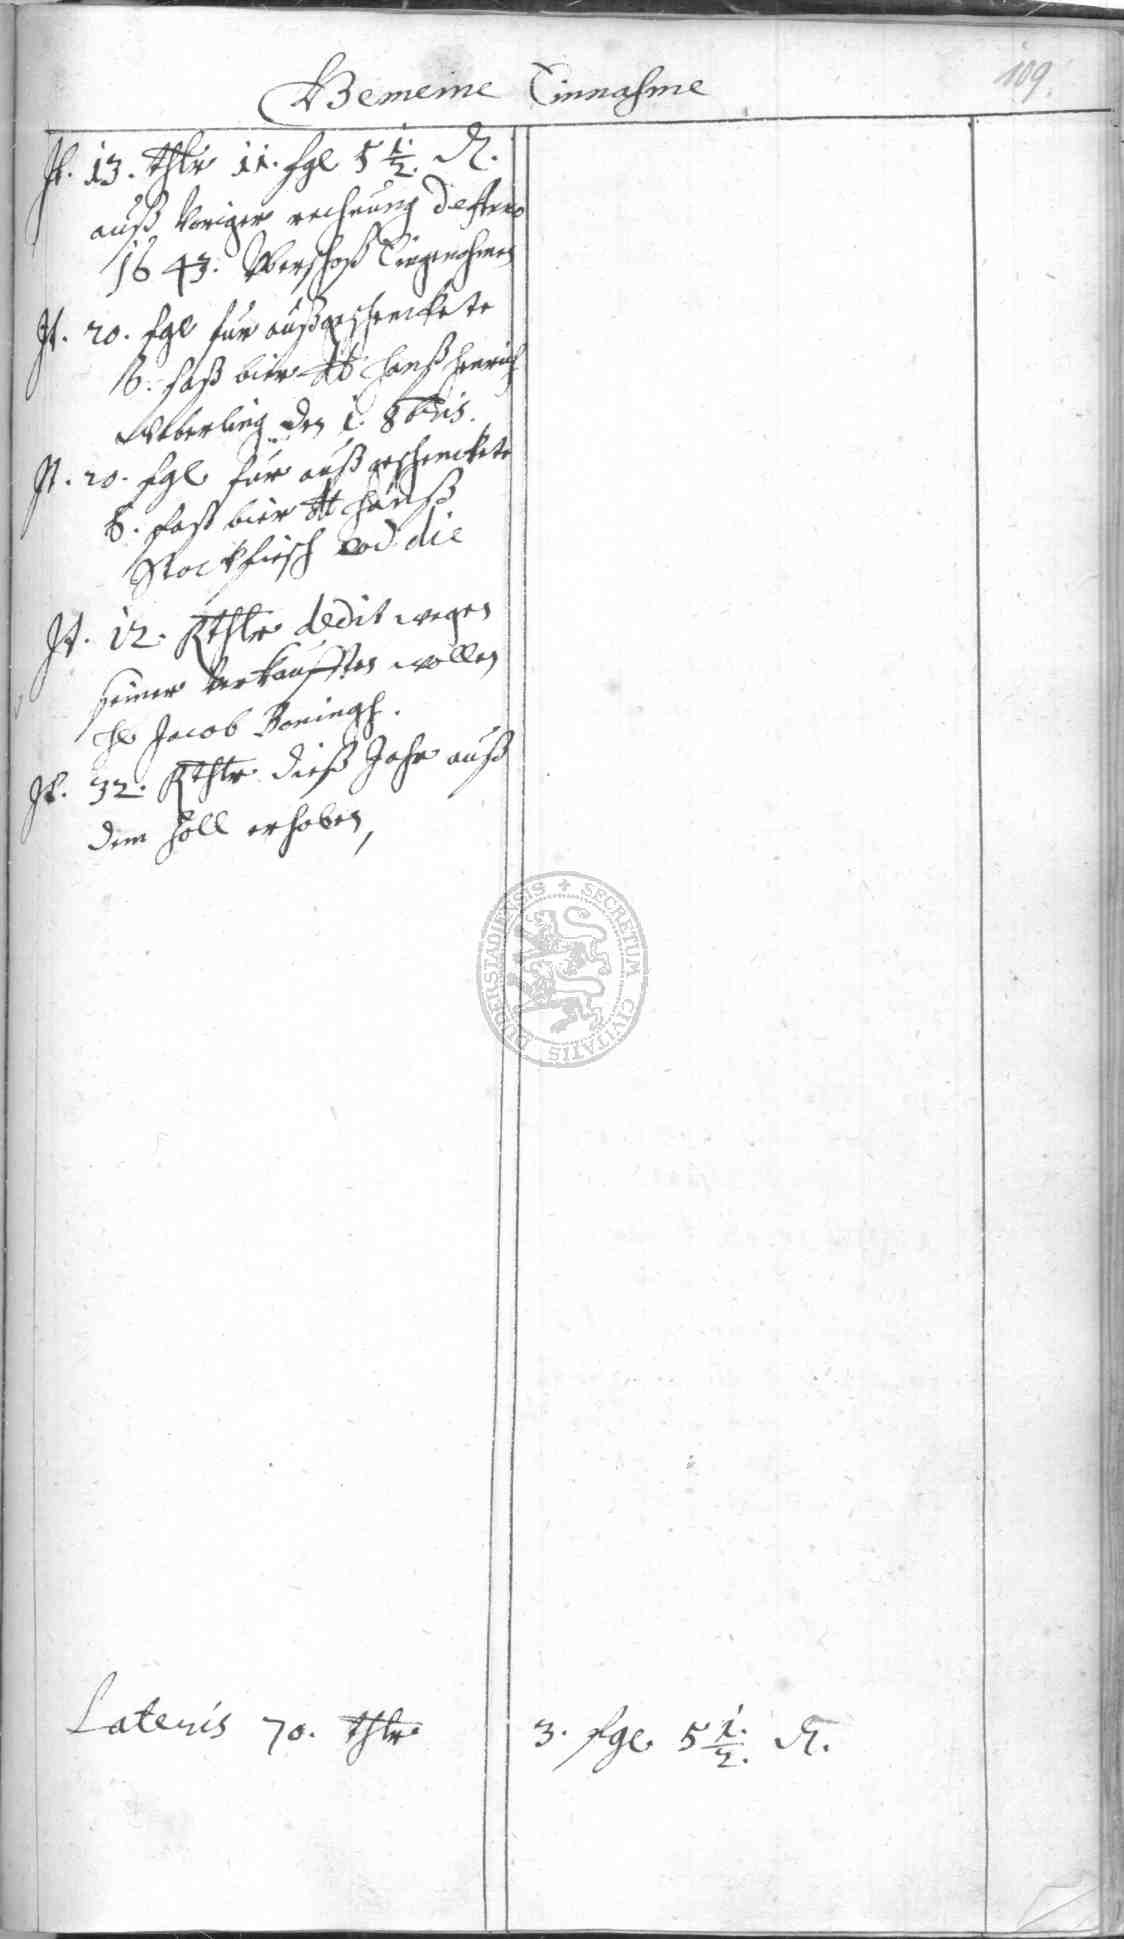 109.
Gemeine Einnahme
It. 13. thlr 11. sgl 5 1/2. ₰.
auß voriger rechnung de Anno
1643. Uberschoß Eingenohmen
It. 20. sgl für außgeschenckete
8. faß bier dt Hanß Henrich
den 1. 8bris.
It. 20. sgl für außgeschenckete
8. faß bier dt Hanß
Stockfisch eod. die
It. 12. Rthlr dedit wegen
seiner verkaufften wollen
Hr Jacob Boningh.
It. 32. Rthlr dieß Jahr auß
dem Zoll erhoben,
SECRETUM CIVITATIS DUDERSTADIENSIS
Lateris 70. thlr 3. sgl 5 1/2. ₰.